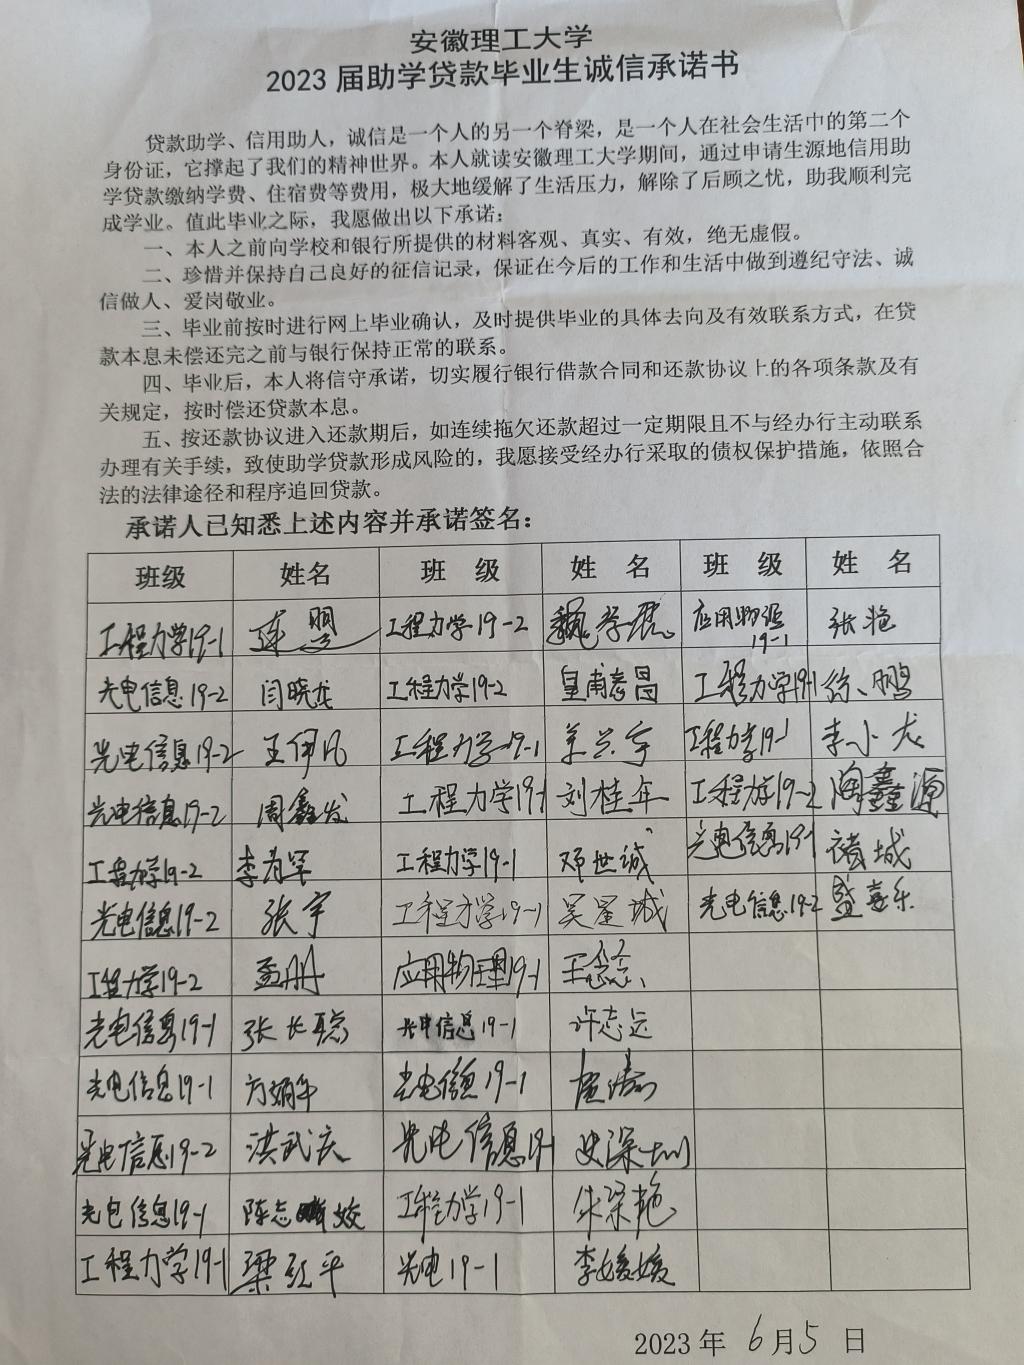 安徽理工大学
2023 届助学贷款毕业生诚信承诺书
贷款助学、信用助人，诚信是一个人的另一个脊梁，是一个人在社会生活中的第二个
身份证，它撑起了我们的精神世界。本人就读安徽理工大学期间，通过申请生源地信用助
学贷款缴纳学费、住宿费等费用，极大地缓解了生活压力，解除了后顾之忧，助我顺利完
成学业。值此毕业之际，我愿做出以下承诺：
一、本人之前向学校和银行所提供的材料客观、真实、有效，绝无虚假。
二、珍惜并保持自己良好的征信记录，保证在今后的工作和生活中做到遵纪守法、诚
信做人、爱岗敬业。
三、毕业前按时进行网上毕业确认，及时提供毕业的具体去向及有效联系方式，在贷
款本息未偿还完之前与银行保持正常的联系。
四、毕业后，本人将信守承诺，切实履行银行借款合同和还款协议上的各项条款及有
关规定，按时偿还贷款本息。
五、按还款协议进入还款期后，如连续拖欠还款超过一定期限且不与经办行主动联系
办理有关手续，致使助学贷款形成风险的，我愿接受经办行采取的债权保护措施，依照合
法的法律途径和程序追回贷款。
承诺人已知悉上述内容并承诺签名：
班级 姓名 班 级 姓 名 班 级 姓 名
工程力学19-1 工程力学19-2 应用物理19-1 张艳
光电信息19-2 闫晓龙 工程力学19-2 皇甫志昌 工程力学19-1 徐鹏
光电信息19-2 王伊凡 工程力学19-1 工程力学19-1 李小龙
光电信息19-2 周鑫发 工程力学19-1 刘桂年 工程力学19-2 陶鑫源
工程力学19-2 工程力学19-1 邓世诚 光电信息19-1 褚城
光电信息19-2 张宇 工程力学19-1 吴星诚 光电信息19-2 盛喜乐
工程力学19-2 孟珊 应用物理19-1 王念念
光电信息19-1 张长聪 光电信息19-1 许志远
光电信息19-1 光电信息19-1
光电信息19-2 洪武庆 光电信息19-1 史深圳
光电信息19-1 陈志姣 工程力学19-1 朱梁艳
工程力学19-1 光电19-1 李媛媛
2023 年 6 月 5 日